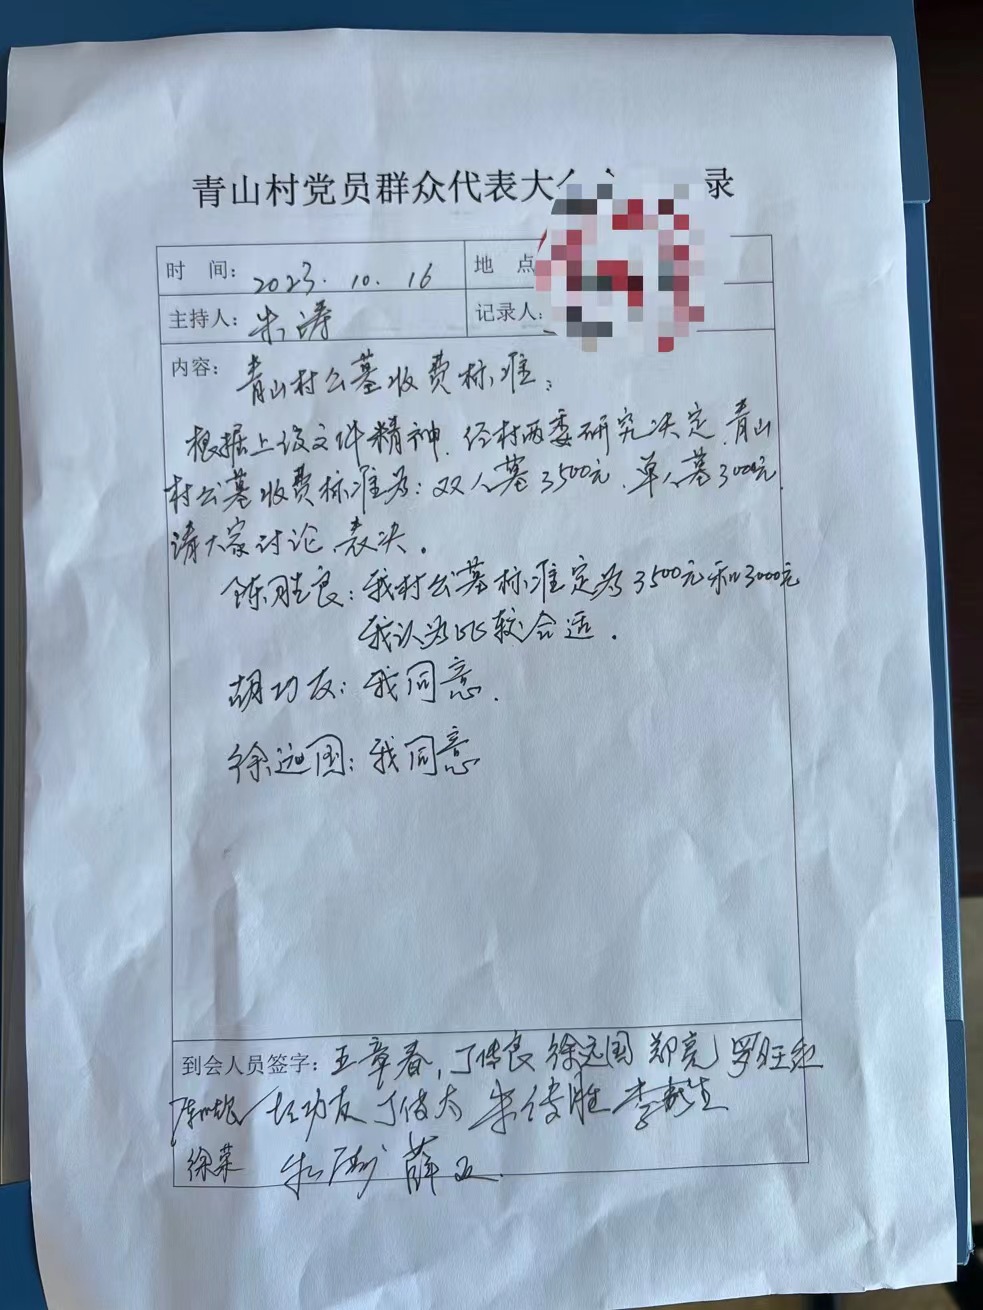 青山村党员群众代表大会 录
时 间：2023.10.16 地 点
主持人：朱涛 记录人：
内容：青山村公墓收费标准：
根据上级文件精神，经村两委研究决定，青山
村公墓收费标准为：双人墓3500元，单人墓3000元，
请大家讨论、表决。
陈胜良：我村公墓标准定为3500元和3000元
我认为比较合适。
胡功友：我同意．
徐远国：我同意
到会人员签字：王章春，丁传良 徐远国 郑亮 罗旺红
胡功友 丁传
徐荣 朱涛 薛